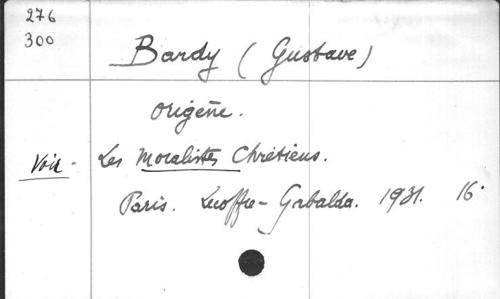 276
300
Bardy (Gustave)
Origène.
Voir - Les Moralistes Chrétiens.
Paris. Lecoffre - Gabalda. 1931. 16°